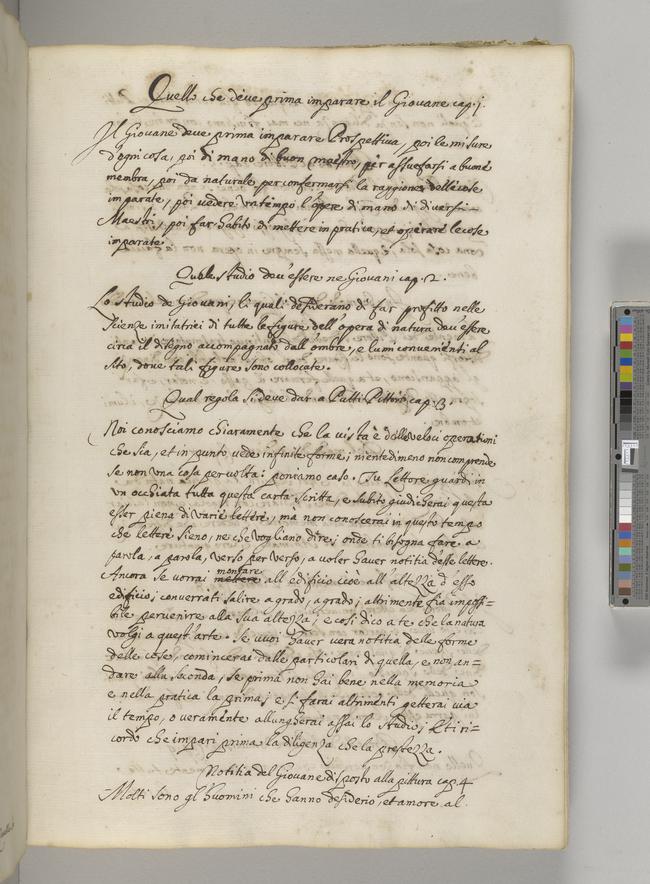 Quello che deve prima imparare il Giovane cap. j.
Il Giovane deve prima imparare Prospettiva, poi le misure
d'ogni cosa, poi di mano di buon maestro, per assuefarsi a buone
membra, poi da naturale per confermarsi la raggione delle cose
imparate, poi vedere un tempo l'opere di mano di diversi
Maestri, poi far habito di mettere in pratica, et operare le cose
imparate.
Quale studio dev'essere ne Giovani cap. 2.
Lo studio de Giovani, li quali desiderano di far profitto nelle
scienze imitatrici di tutte le figure dell'opera di natura dev'essere
circa il disegno accompagnato dall'ombre, e lumi convenienti al
sito, dove tali figure sono collocate.
Qual regola si deve dar a Putti Pittori cap. 3.
Noi conosciamo chiaramente che la vista è delle veloci operationi
che sia, et in punto vede infinite forme; nientedimeno non comprende
se non una cosa per volta: poniamo caso. Tu Lettore guardi in
un occhiata tutta questa carta scritta, e subito giudicherai questa
esser piena di varie lettere, mà non conoscerai in questo tempo
che lettere sieno, ne che vogliano dire; onde ti bisogna fare a
parola, a parola, verso per verso, a voler haver notitia d'esse lettere.
Ancora se vorrai montare mettere all edificio cioè all'altezza d'esso
edificio; converrati salire a grado, a grado; altrimente fia impossi=
bile pervenire alla sua altezza; e così dico a te che la natura
volgi a quest'arte. Se vuoi haver vera notitia delle forme
delle cose, comincerai dalle particolari di quella, e non an=
dare alla seconda, se prima non hai bene nella memoria
e nella pratica la prima; e si farai altrimenti getterai via
il tempo, o veramente allungherai assai lo studio; Et ti ri=
cordo che impari prima la diligenza che la prestezza.
Notitia del Giovane disposto alla pittura cap. 4
Molti sono gl'huomini che hanno desiderio, et amore al